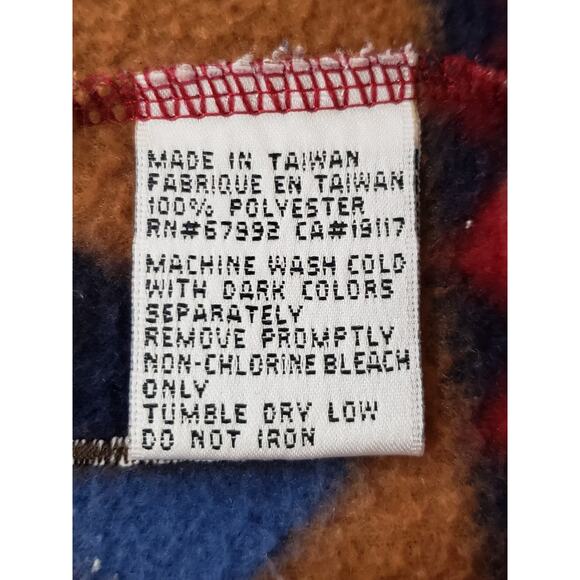 MADE IN TAIWAN
FABRIQUE EN TAIWAN
100% POLYESTER
RN#67992 CA#19117
MACHINE WASH COLD
WITH DARK COLORS
SEPARATELY
REMOVE PROMPTLY
NON-CHLORINE BLEACH
ONLY
TUMBLE DRY LOW
DO NOT IRON